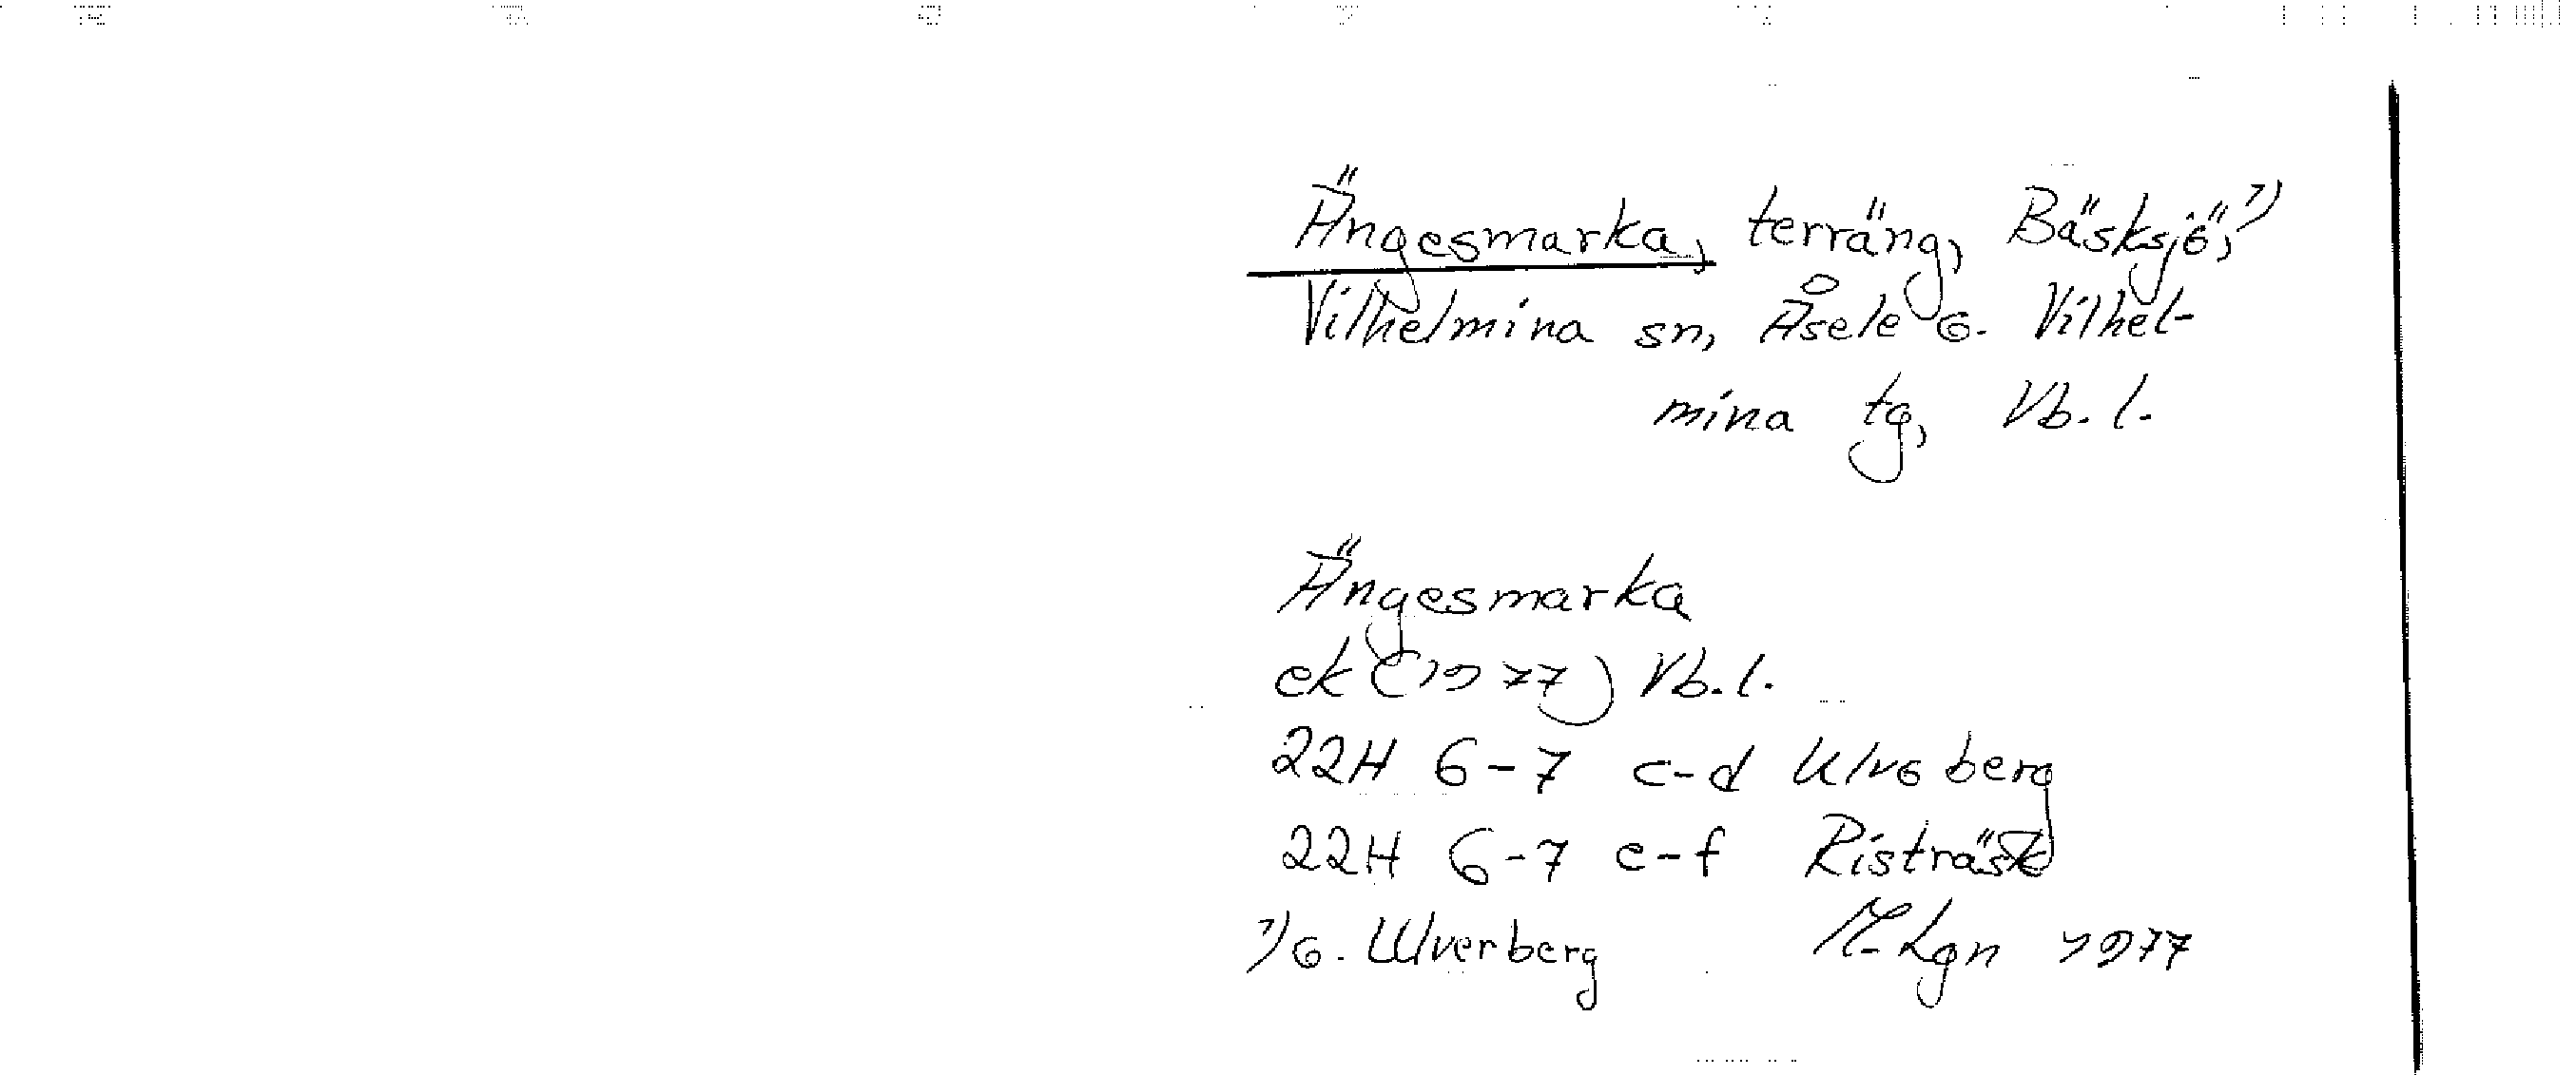 Ängesmarka, terräng, Bäsksjö,¹)
Vilhelmina sn, Åsele o. Vilhel-
mina tg, Vb. l.
Ängesmarka
ek (1977) Vb. l.
22H 6-7 c-d Ulvoberg
22H 6-7 e-f Risträsk
¹) o. Ulverberg M. Lgn 1977